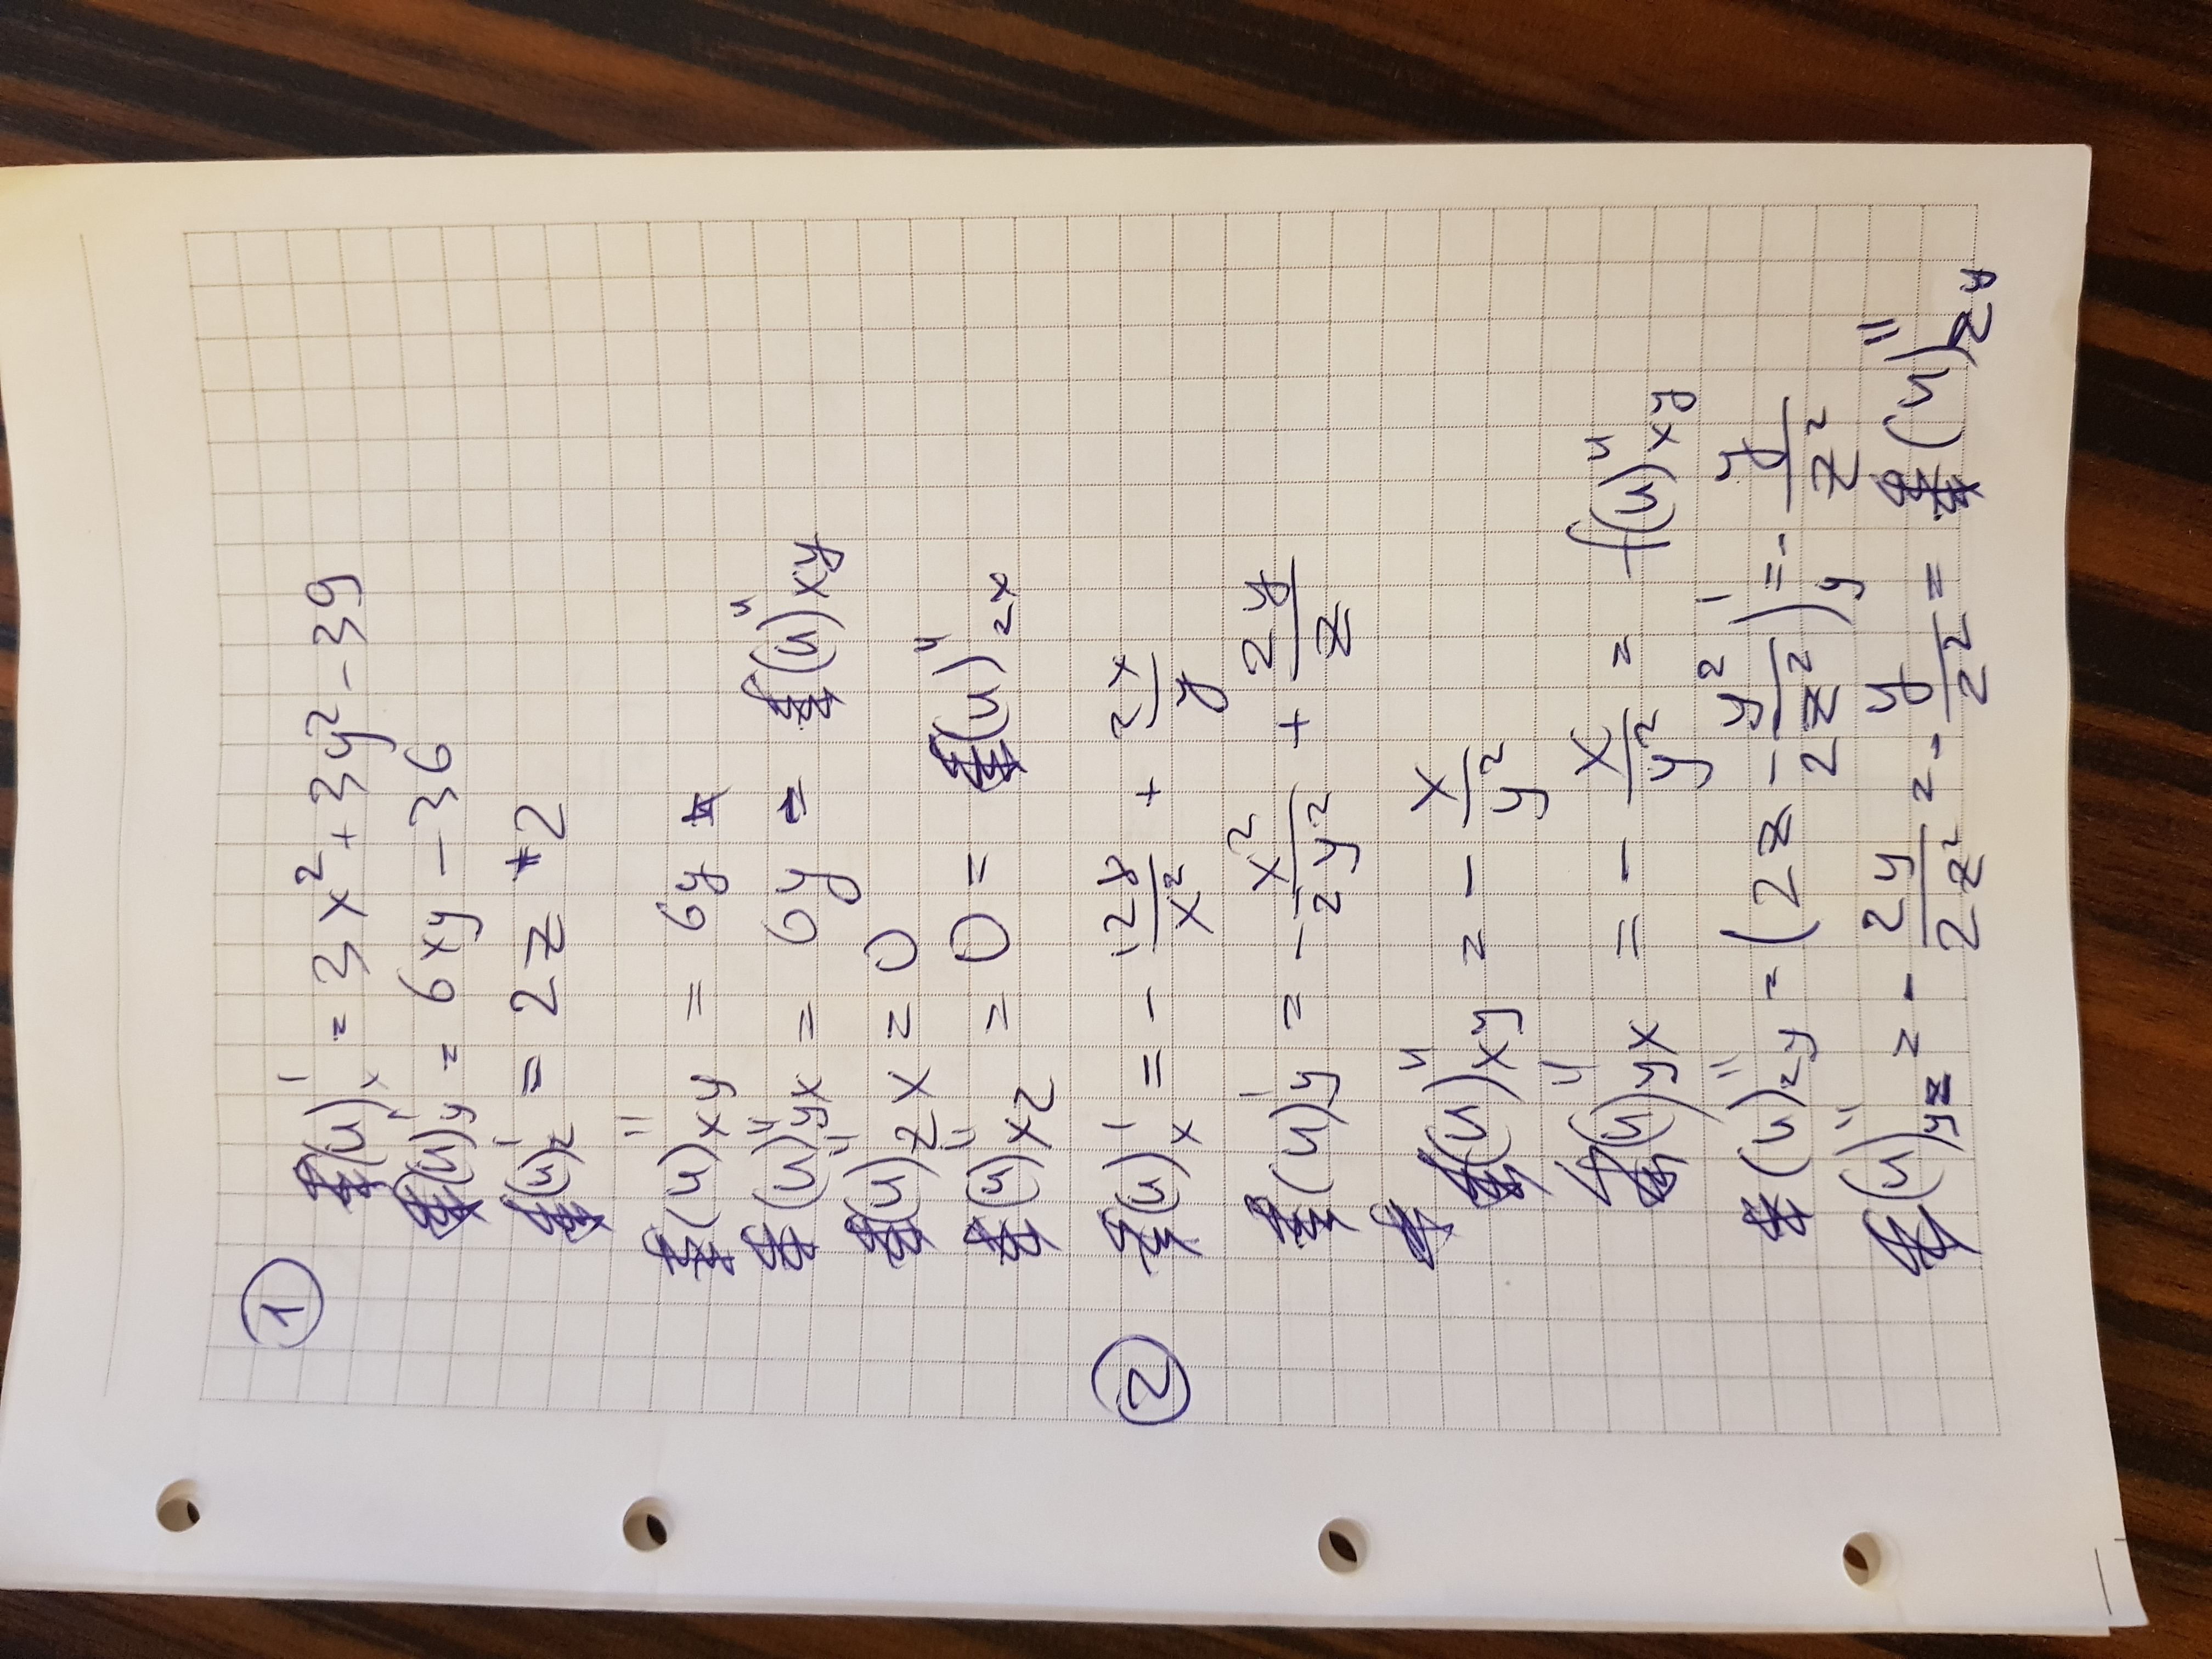 1
(u)'x = 3x² + 3y² - 39
(u)'y = 6xy - 36
(u)'z = 2z + 2
(u)''xy = 6y
(u)''yx = 6y = (u)''xy
(u)''zx = 0
(u)''xz = 0 = (u)''zx
2 (u)'x = - 128/x² + 2x/y
(u)'y = - x²/2y² + 2y/z
(u)''xy = - x/y²
(u)''yx = - x/y² = f(u)''xy
(u)''zy = (2z - y²/2z²)'y = - y/z²
(u)''yz = - 2y/2z² = - y/z² = (u)''zy